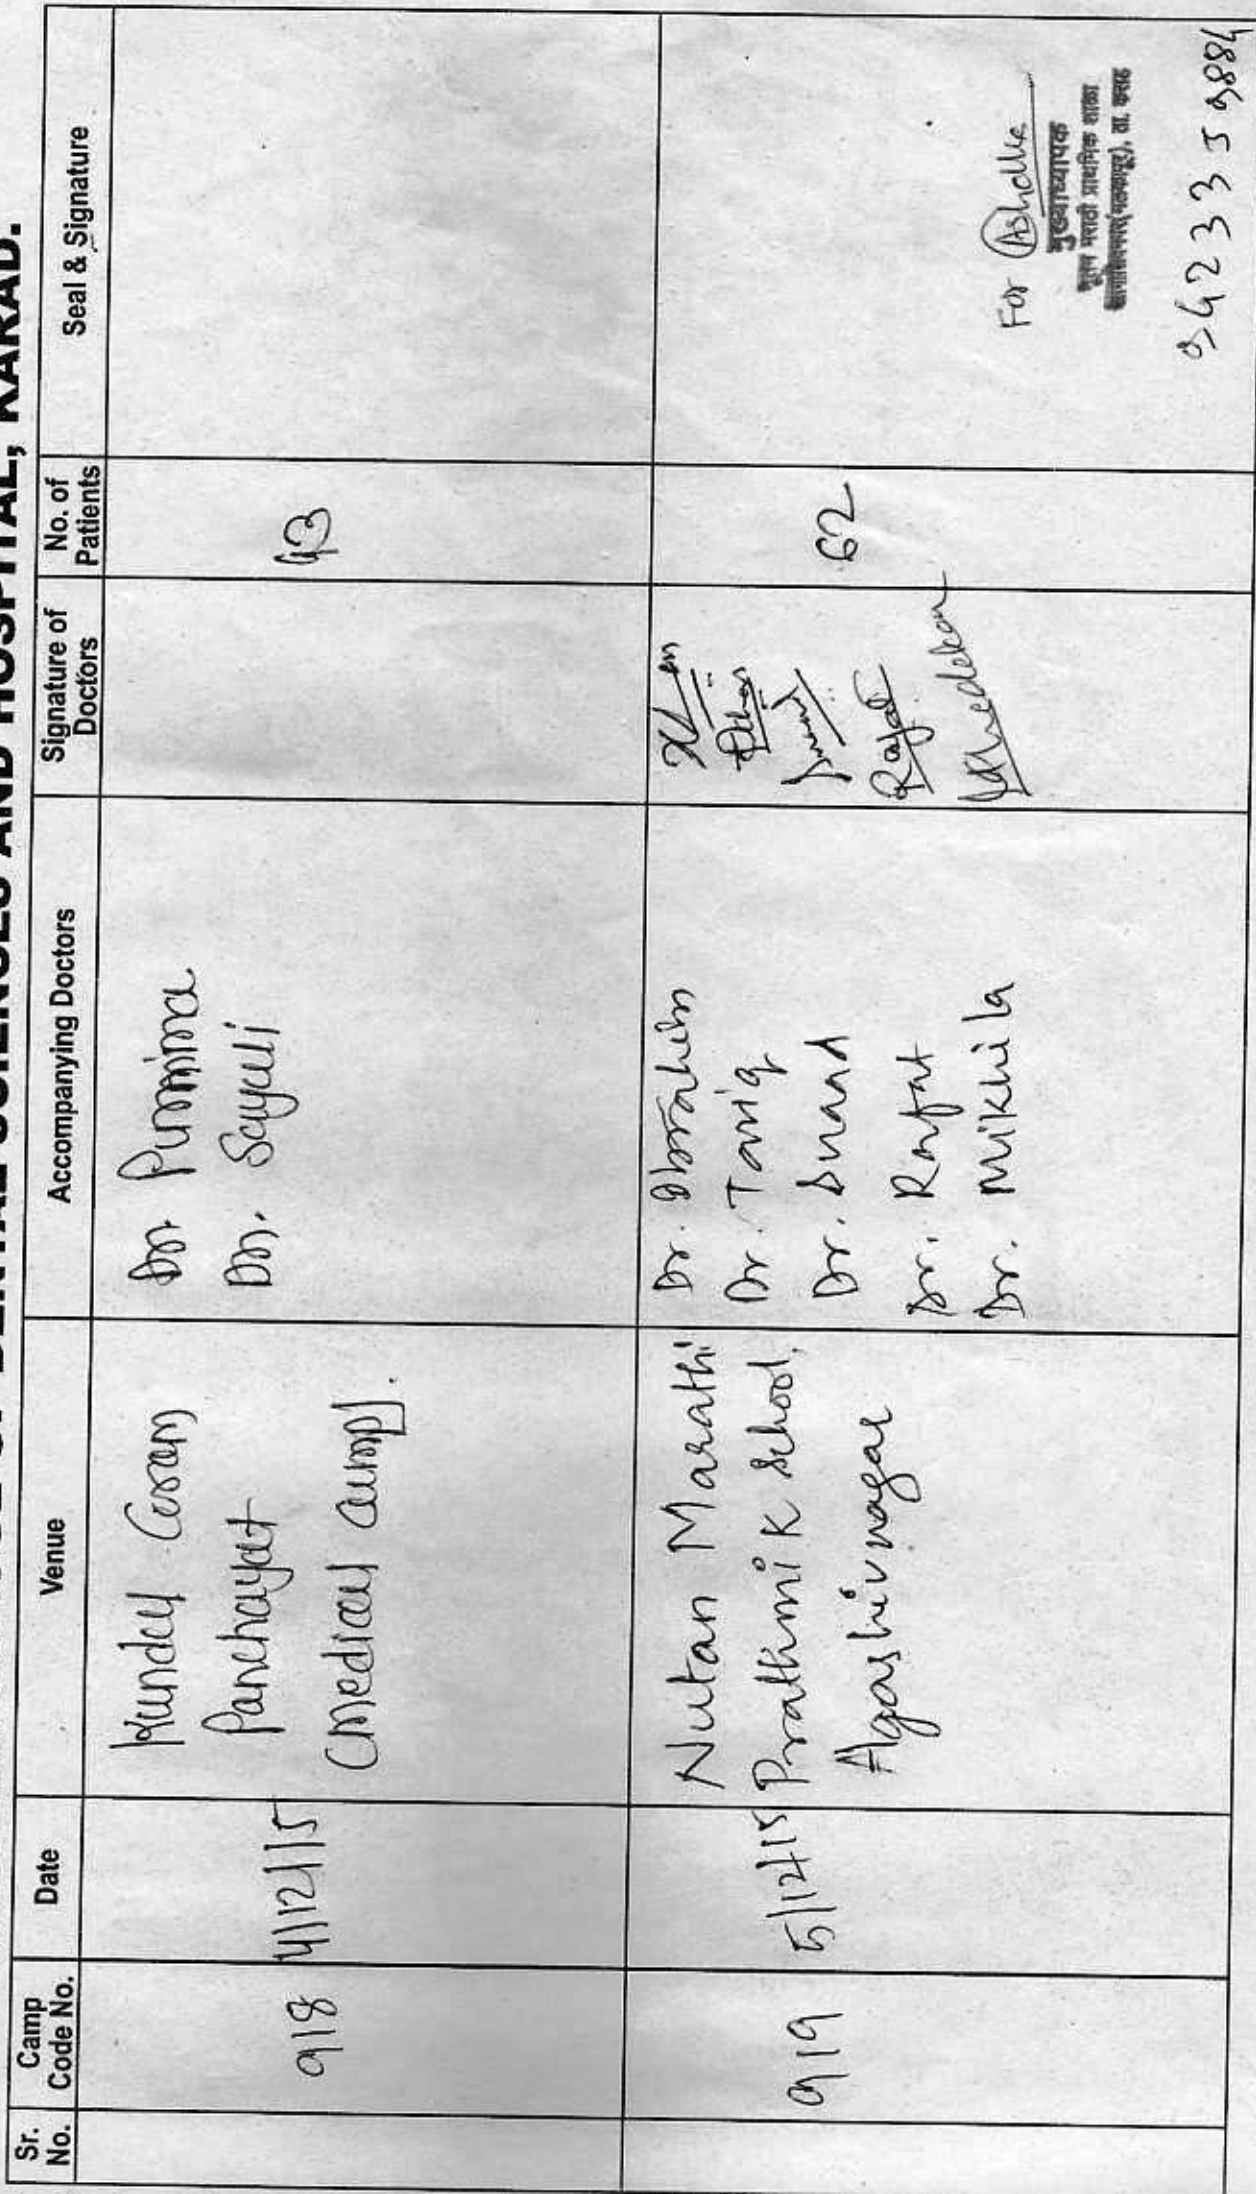 DENTAL SCIENCES AND HOSPITAL, KARAD.
Sr. No.
Camp Code No.
Date
Venue
Accompanying Doctors
Signature of Doctors
No. of Patients
Seal & Signature
918
4/12/15
Panchayat
(medical camp).
Dr. Purnima
Dr. Sayali
43
919
5/12/15
Nutan Marathi
Prathmik School,
Agashivnagar
Dr. Ibrahim
Dr. Tariq
Dr. Suaad
Dr. Rafat
Dr. Nikhila
Rafat
62
For
मुख्याध्यापक
नूतन मराठी प्राथमिक शाळा
9423359884